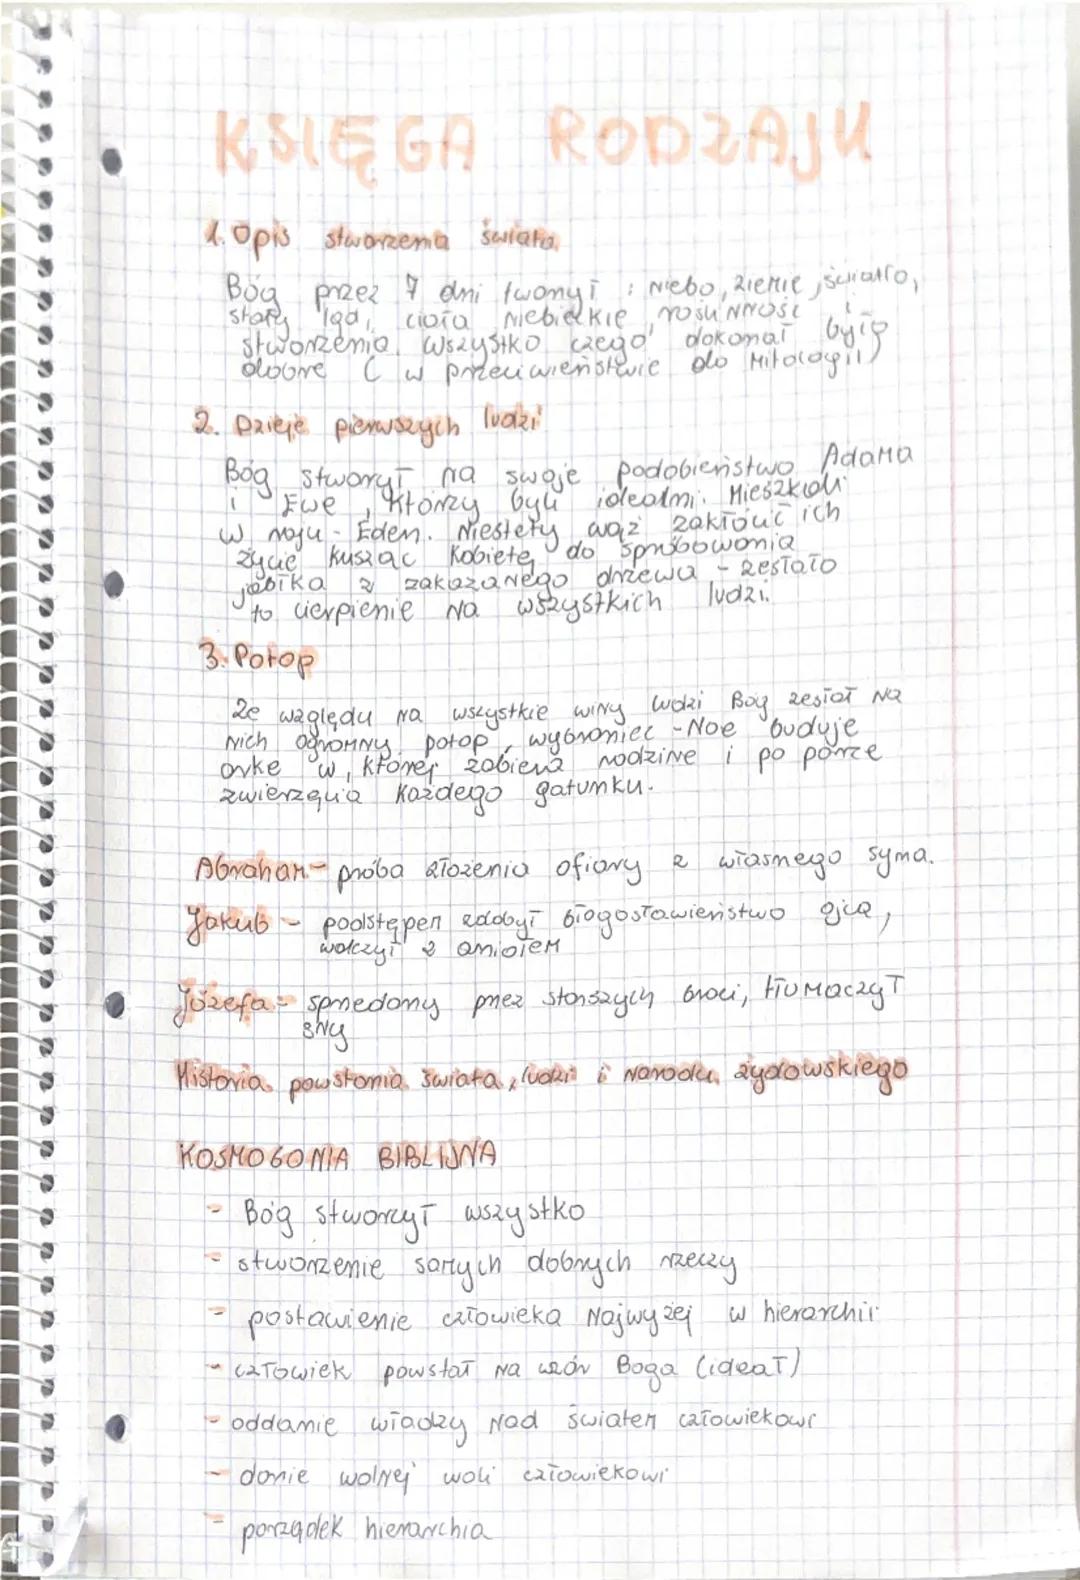 KSIĘGA RODZAJU
1. Opis stworzenia świata
Bóg przez 7 dni tworzył : Niebo, ziemie, światło,
stały ląd, ciała Niebieskie, roślinność i
stworzenia. Wszystko czego dokonał było
dobre ( w przeciwieństwie do Mitologii)
2. Dzieje pierwszych ludzi
Bóg stworzył na swoje podobieństwo Adama
i Ewe, którzy byli idealni. Mieszkali
w raju - Eden. Niestety wąż zakłócić ich
życie kusząc kobietę do spróbowania
jabłka z zakazanego drzewa - zesłało
to cierpienie na wszystkich ludzi.
3. Potop
Ze względu na wszystkie winy ludzi Bóg zesłał na
nich ogromny potop, wybraniec - Noe buduje
arke w, której zabiera rodzine i po parze
zwierzęcia każdego gatunku.
Abraham - próba złożenia ofiary z własnego syna.
Jakub - podstępem zdobył błogosławieństwo ojca,
walczył z aniołem
Józefa - sprzedany przez starszych braci, tłumaczył
sny
Historia powstania świata, ludzi i Narodu żydowskiego
KOSMOGONIA BIBLIJNA
- Bóg stworzył wszystko
- stworzenie samych dobrych rzeczy
- postawienie człowieka Najwyżej w hierarchii
- człowiek powstał na wzór Boga (ideał)
- oddanie władzy nad światem człowiekowi
- danie wolnej woli człowiekowi
- porządek hierarchia